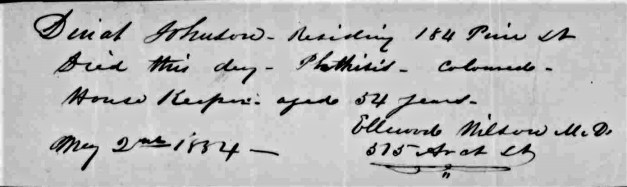 Dinah Johnson - Residing 184 Pine St
Died this day - Phthisis - coloured -
House Keeper - aged 54 years -
Ellwood Wilson M.D.
May 2nd 1854 -
575 Arch St